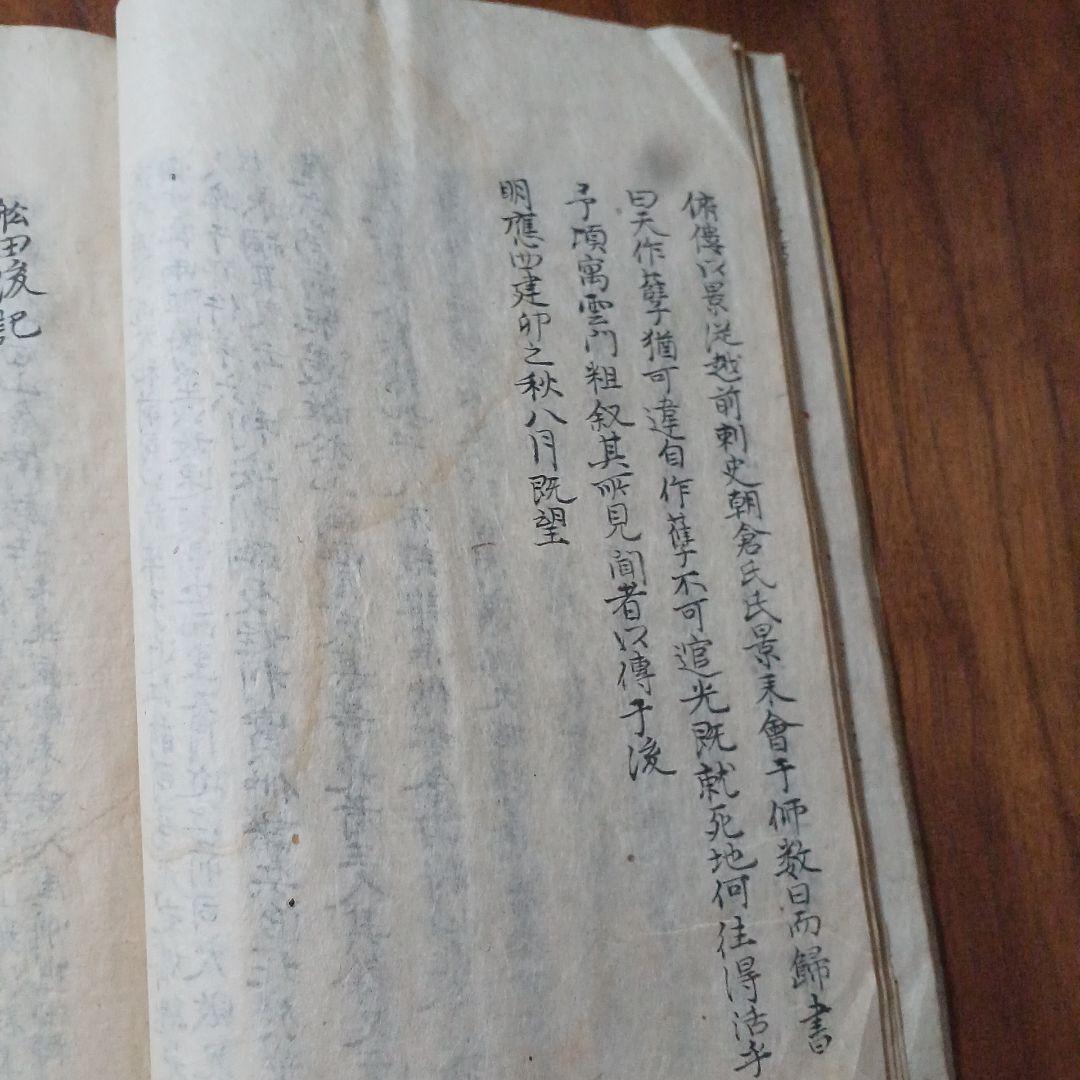 脩僂以景従越前刺史朝倉氏氏景来會于師数日而歸書
曰天作孽猶可違自作孽不可逭光既就死地何往得活乎
予頃寓雲門粗叙其所見聞者以傳于後
明應四建卯之秋八月既望
舩田後記